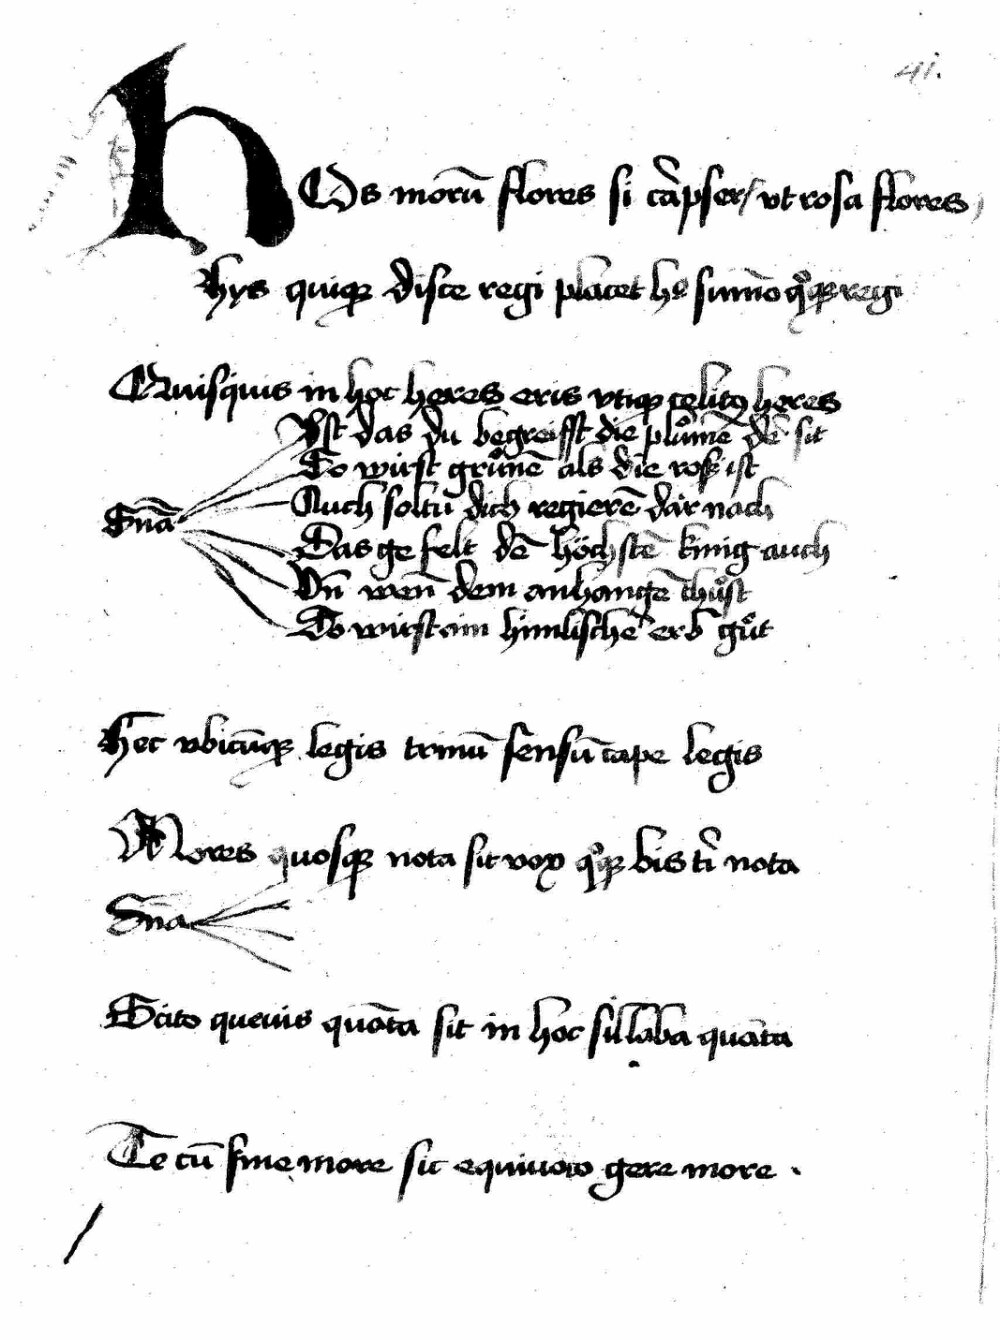 41.
HOs morū flores si cāpser / vt rosa flores
hys quiqꝫ disce regi placet hͦ sum̄o qͦqꝫ regi
Quisquis in hoc heres eris vtiqꝫ celitꝫ heres
Yst das du begreifft die plůmē dē sit
So wirst grůnē als die roß ist
Auch soltu dich regierē dar nach
Sn̄a
Das ge felt dē höchstē kinig auch
Vn̄ wen̄ dem anhangē thůst
So wirst ain himlischē erb gůt
Hec vbicūqꝫ legis trinū sensū cape legis
Mores quosqꝫ nota sit vox qͦqꝫ bis tͥ nota
Sn̄a
Scito queuis quōta sit in hoc sillaba quāta
Te cū sine more sic equiuoco gere more .